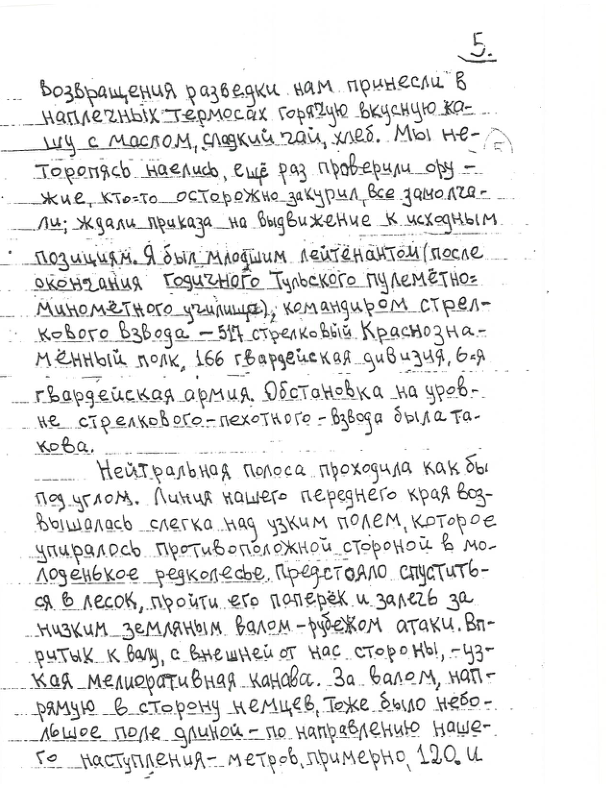 5.
возвращения разведки нам принесли в
наплечных термосах горячую вкусную ка-
шу с маслом, сладкий чай, хлеб. Мы не-
торопясь наелись, ещё раз проверили ору-
жие, кто-то осторожно закурил, все замолча-
ли; ждали приказа на выдвижение к исходным
позициям. Я был младшим лейтенантом (после
окончания годичного Тульского пулемётно-
миномётного училища), командиром стрел-
кового взвода – 517 стрелковый Краснозна-
мённый полк, 166 гвардейская дивизия, 6-я
гвардейская армия. Обстановка на уров-
не стрелкового – пехотного – взвода была та-
кова.
Нейтральная полоса проходила как бы
под углом. Линия нашего переднего края воз-
вышалась слегка над узким полем, которое
упиралось противоположной стороной в мо-
лоденькое редколесье. Предстояло спустить-
ся в лесок, пройти его поперёк и залечь за
низким земляным валом – рубежом атаки. Вп-
ритык к валу, с внешней от нас стороны, – уз-
кая мелиоративная канава. За валом, нап-
рямую в сторону немцев, тоже было небо-
льшое поле длиной – по направлению наше-
го наступления – метров, примерно, 120. И